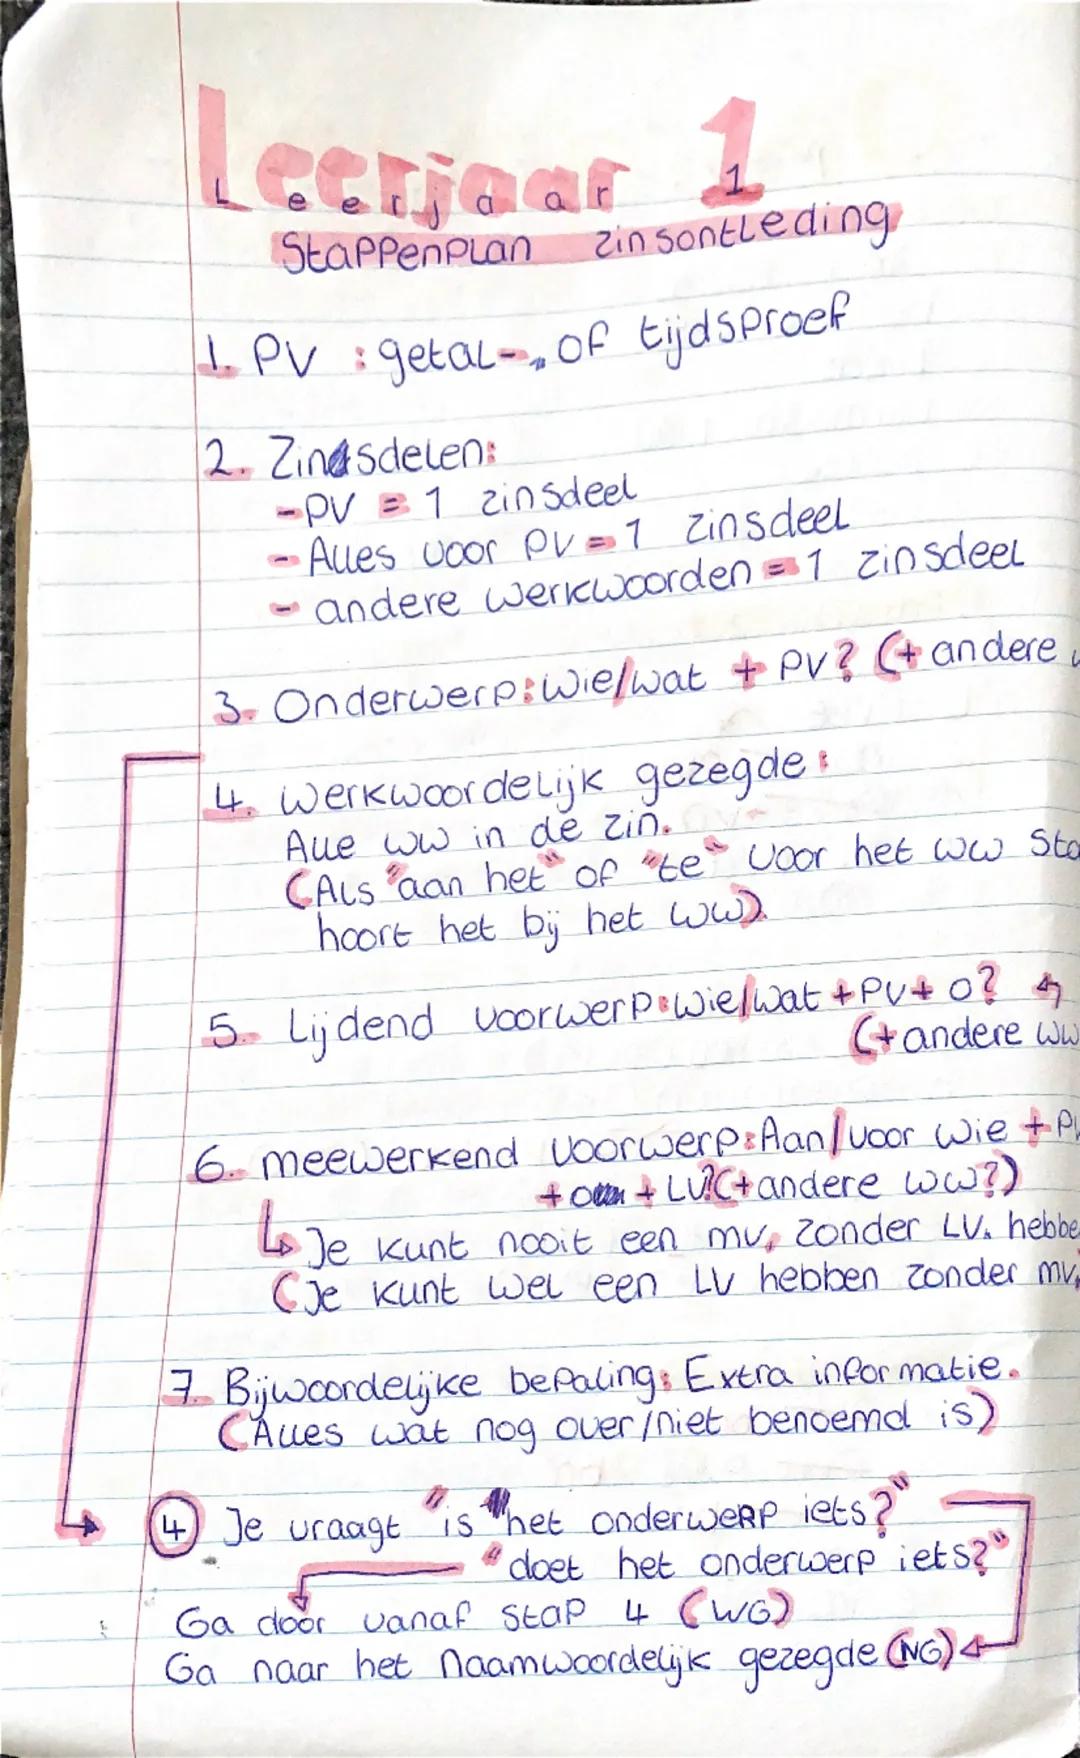 Leerjaar 1
Leerjaar 1
Stappenplan zinsontleding
1. PV : getal-, of tijdsproef
2. Zinsdelen:
- PV = 1 zinsdeel
- Alles voor PV = 1 zinsdeel
- andere werkwoorden = 1 zinsdeel
3. Onderwerp: wie/wat + PV? (+ andere
4. Werkwoordelijk gezegde:
Alle ww in de zin.
(Als "aan het" of "te" voor het ww sta
hoort het bij het ww).
5. Lijdend voorwerp: wie/wat + PV + O? ↰
(+ andere ww
6. meewerkend voorwerp: Aan/voor wie + PV
+ o + LV? (+ andere ww?)
↳ Je kunt nooit een mv, zonder LV. hebbe
(Je kunt wel een LV hebben zonder mv,
7. Bijwoordelijke bepaling: Extra informatie.
(Alles wat nog over/niet benoemd is)
4 Je vraagt "is het onderwerp iets?"
"doet het onderwerp iets?"
Ga door vanaf stap 4 (WG)
Ga naar het Naamwoordelijk gezegde (NG)